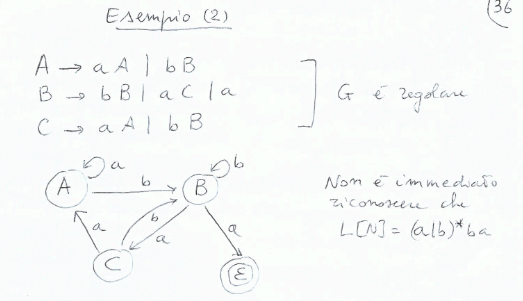 Esempio (2)
36
A → aA | bB
B → bB | aC | a
C → aA | bB
G è regolare
a
b
A
b
B
Non è immediato
riconoscere che
L[N] = (a|b)*ba
a
b
a
a
C
E